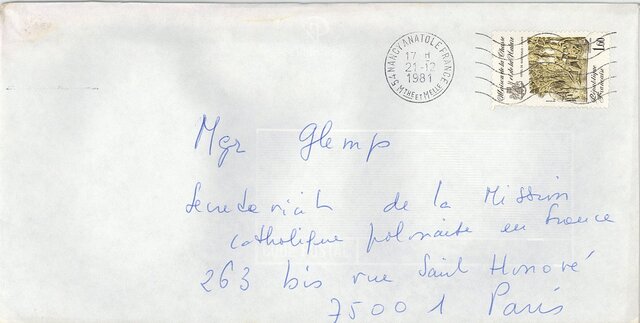 54 NANCY ANATOLE FRANCE
17 H
21-12
1981
MTHE ET MELLE
Maison de la Chasse
et de la Nature
1,60
République
Française
Mgr Glemp
Secretariat de la Mission
catholique polonaise en France
263 bis rue Saint Honoré
75001 Paris